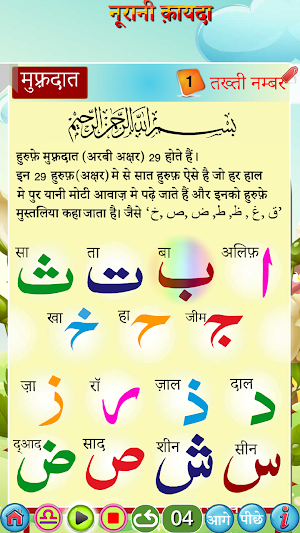 नूरानी क़ायदा
मुफ़्रदात
1 तख्ती नम्बर
بسم الله الرحمن الرحيم
हुरुफ़े मुफ़्रदात (अरबी अक्षर) 29 होते हैं।
इन 29 हुरुफ़(अक्षर) मे से सात हुरुफ़ ऐसे है जो हर हाल
मे पुर यानी मोटी आवाज़ मे पढ़े जाते हैं और इनको हुरुफ़े
मुस्तलिया कहा जाता है। जैसे ‘ق , غ , ظ , ط , ض , ص , خ’
सा ता बा अलिफ़
ث ت ب ا
खा़ हा जीम
خ ح ج
ज़ा रॉ ज़ाल दाल
ز ر ذ د
द्आद साद शीन सीन
ض ص ش س
04 आगे पीछे i